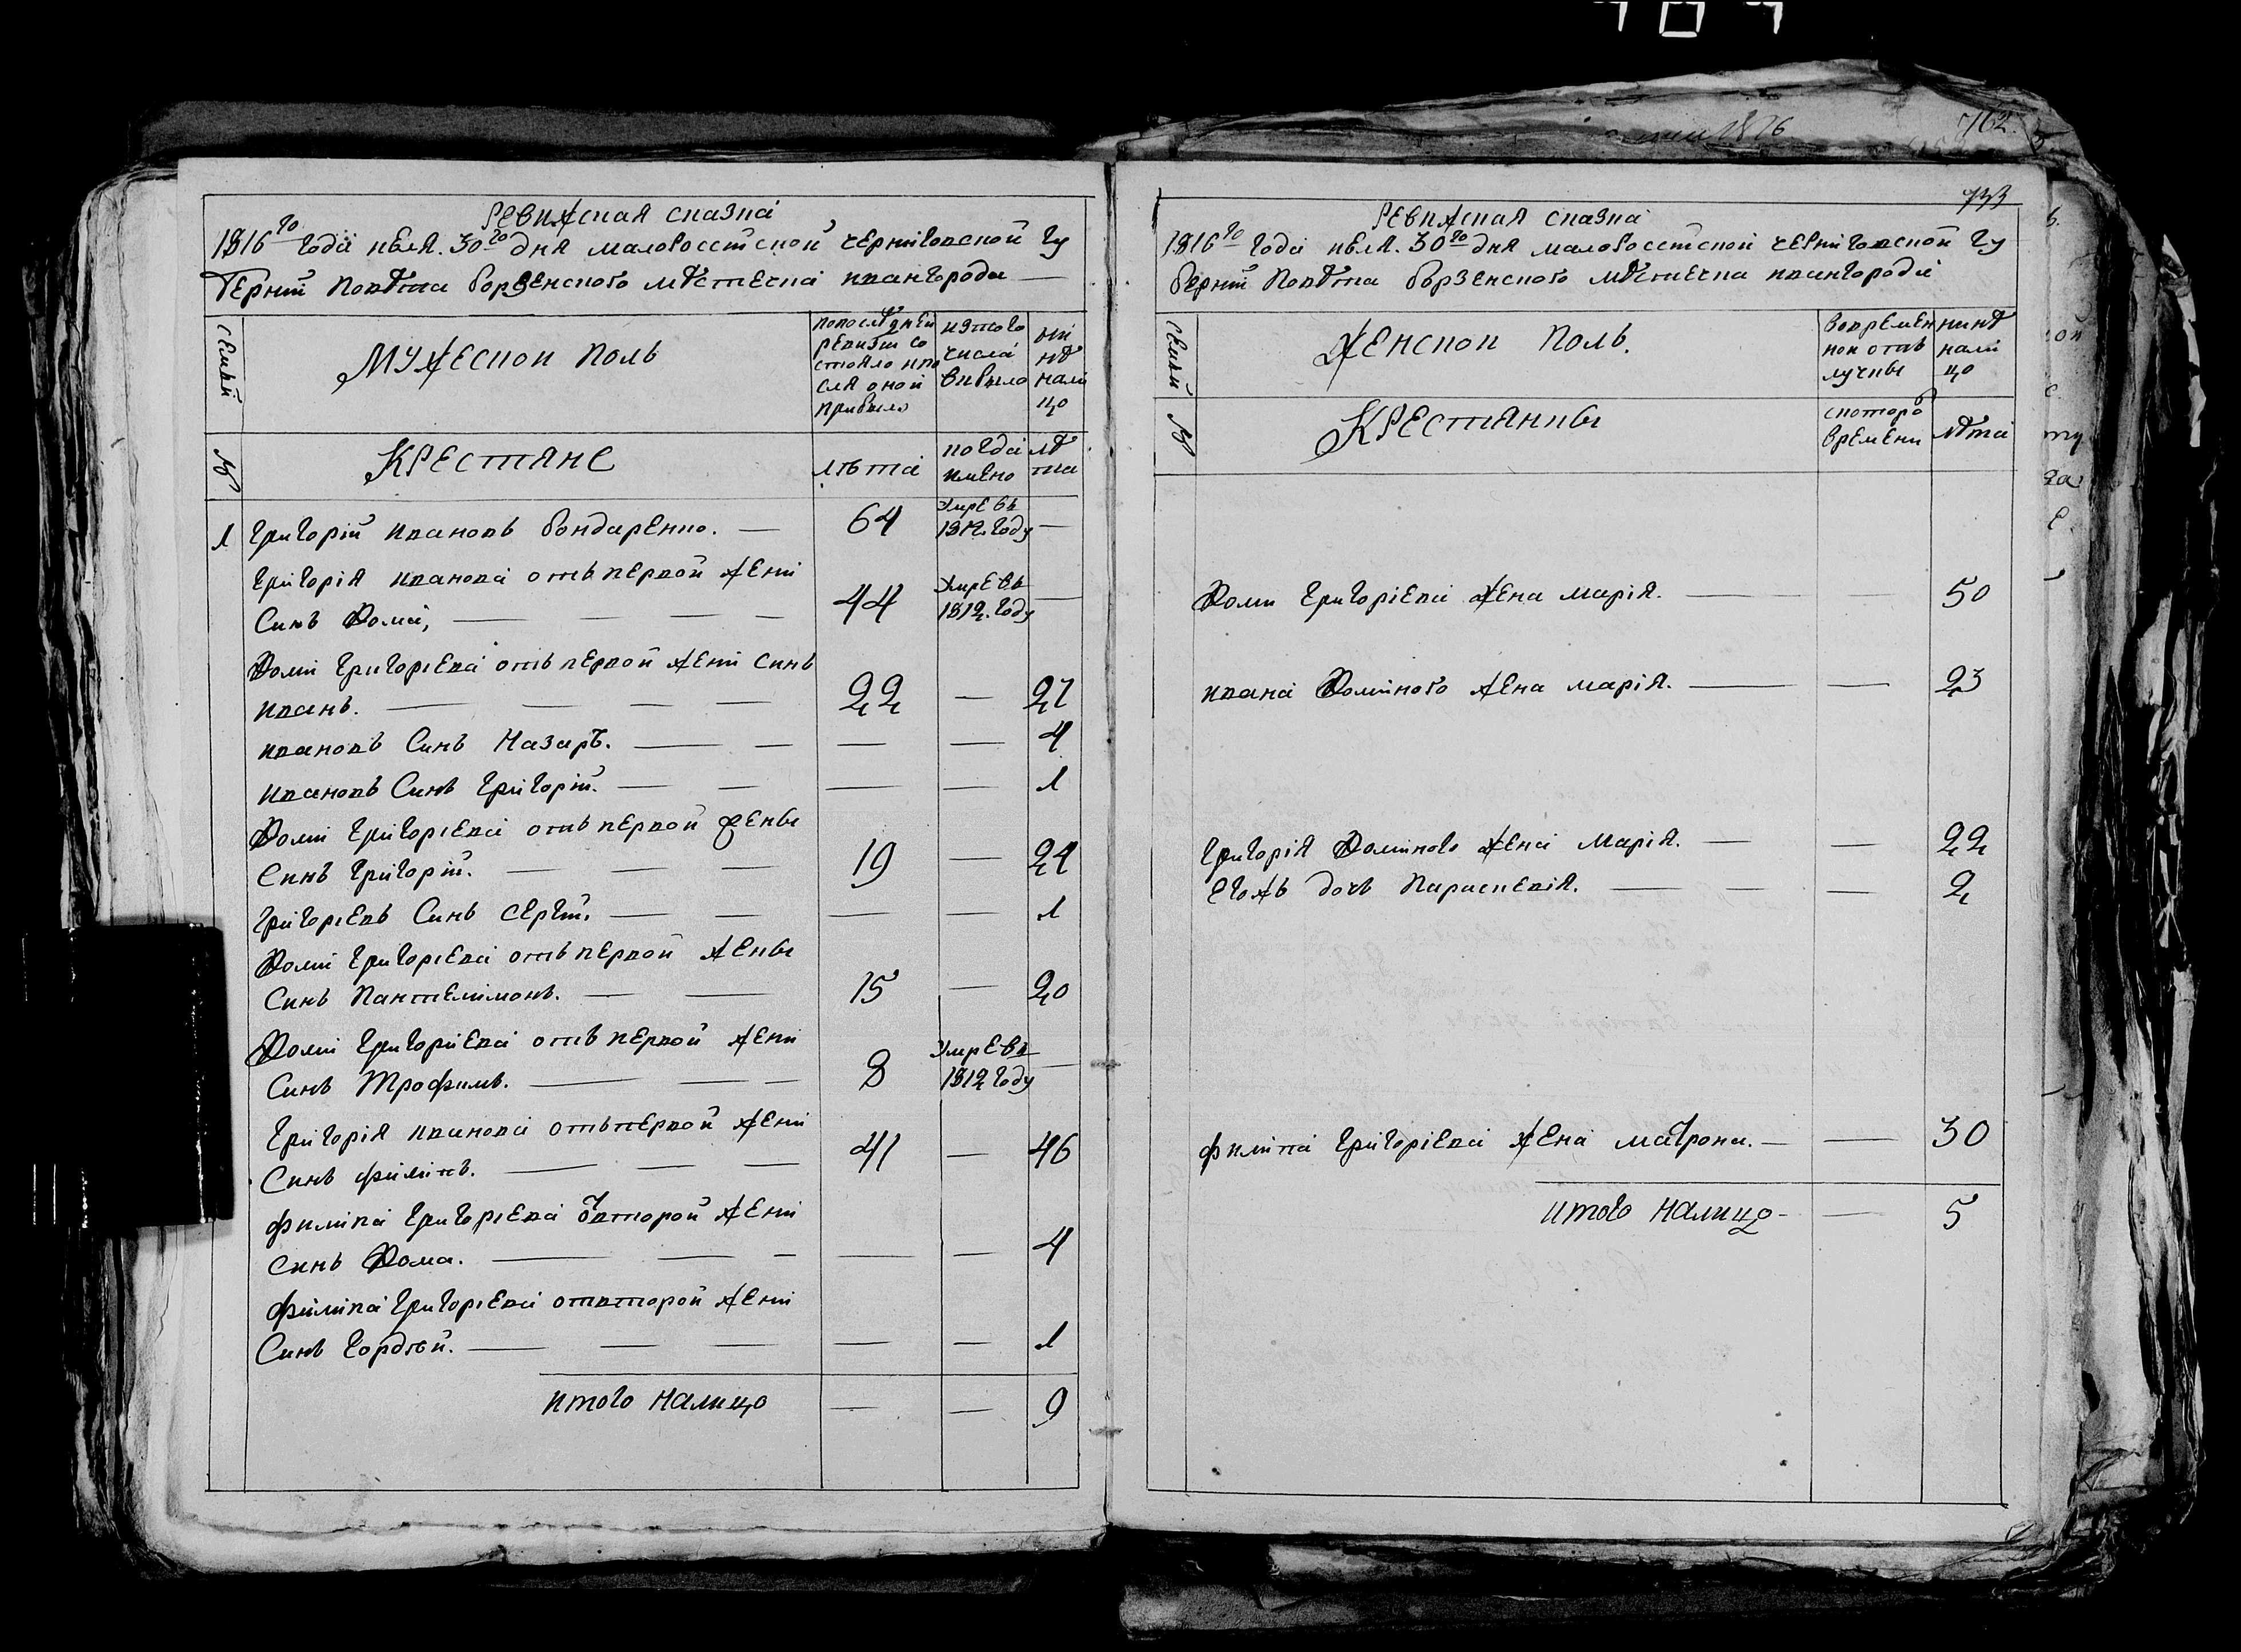 Ревижская сказка
1816го года июля 30го дня малоросстской черниговской гу
бернии Повѣта борзенского мѣстечка ивангорода
семьи
Мужескои поль
попослѣднеи
ревизии со
стояло ипо
сля оной
прибыло
изтого
числа
вибыло
ни
нѣ
нали
цо
№
Крестяне
лѣта
погда
имено
лѣ
та
1 Григорій ивановъ бондаренко. — 64 Умревъ 1812. году —
Григорія иванова отъ первой жени
Синъ Фома, — 44 Умревъ 1812. году —
Фоми Григориева отъ первой жени синъ
иванъ. — 22 — 27
ивановъ Синъ Назаръ. — — — 4
ивановъ Синъ Григорій. — — — 1
Фоми Григориева отъ первой жены
Синъ Григорій. — 19 — 24
Григориевъ Синъ Сергій. — — — 1
Фоми Григориева отъ первой жены
Синъ Пантелимонъ. — 15 — 20
Фоми Григориева отъ первой жени
Синъ Трофимъ. — 8 Умревъ 1812 году —
Григорія иванова отъ первой жени
Синъ филипъ. — 41 — 46
филипа Григориева отвторой жени
синъ Фома. — — — 4
филипа Григориева отвторой жени
Синъ Гордѣй. — — — 1
итого налицо — — 9
762
733
Ревижская сказка
1816го года июля 30го дня малоросстской черниговской гу
бернии Повѣта борзенского мѣстечка ивангорода
семьи
Женскои Поль.
вовремен
нои отъ
лучкы
нинѣ
нали
цо
№
Крестянкы
скоторо
времени
лѣта
Фоми Григоріева жена марія. — — 50
ивана Фоминого жена марія. — — 23
Григорія Фоминого жена Марія. — — 22
егожъ дочъ Параскевія. — — 2
филипа Григоріева жена матрона. — — 30
итого налицо — — 5